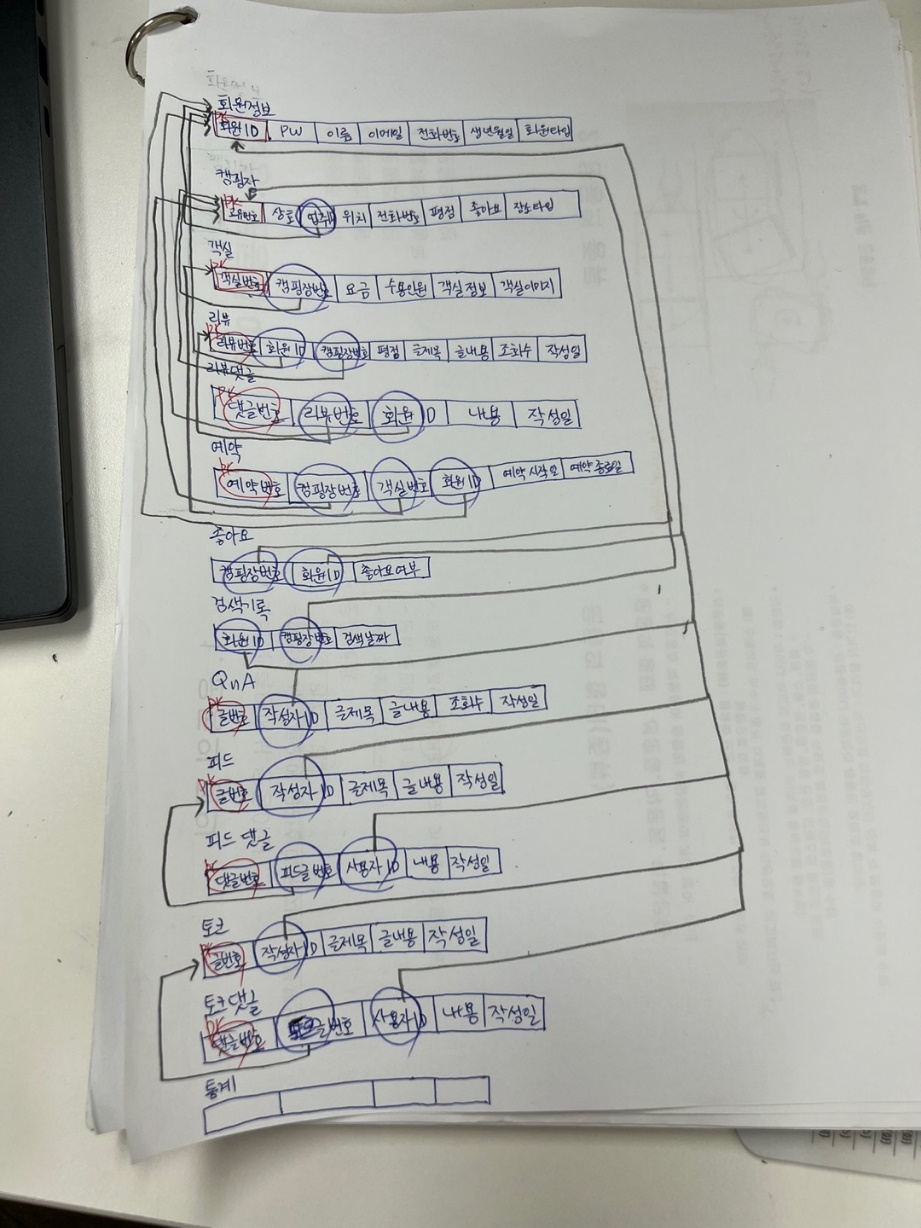 회원정보
PK
회원ID PW 이름 이메일 전화번호 생년월일 회원타입
캠핑장
PK
고유번호 상호 업주ID 위치 전화번호 평점 좋아요 장소타입
객실
PK
객실번호 캠핑장번호 요금 수용인원 객실정보 객실이미지
리뷰
PK
리뷰번호 회원ID 캠핑장번호 평점 글제목 글내용 조회수 작성일
리뷰댓글
PK
댓글번호 리뷰번호 회원ID 내용 작성일
예약
PK
예약번호 캠핑장번호 객실번호 회원ID 예약시작일 예약종료일
좋아요
캠핑장번호 회원ID 좋아요여부
검색기록
회원ID 캠핑장번호 검색날짜
QnA
PK
글번호 작성자ID 글제목 글내용 조회수 작성일
피드
PK
글번호 작성자ID 글제목 글내용 작성일
피드 댓글
PK
댓글번호 피드글번호 사용자ID 내용 작성일
토크
PK
글번호 작성자ID 글제목 글내용 작성일
토크댓글
PK
댓글번호 글번호 사용자ID 내용 작성일
통계